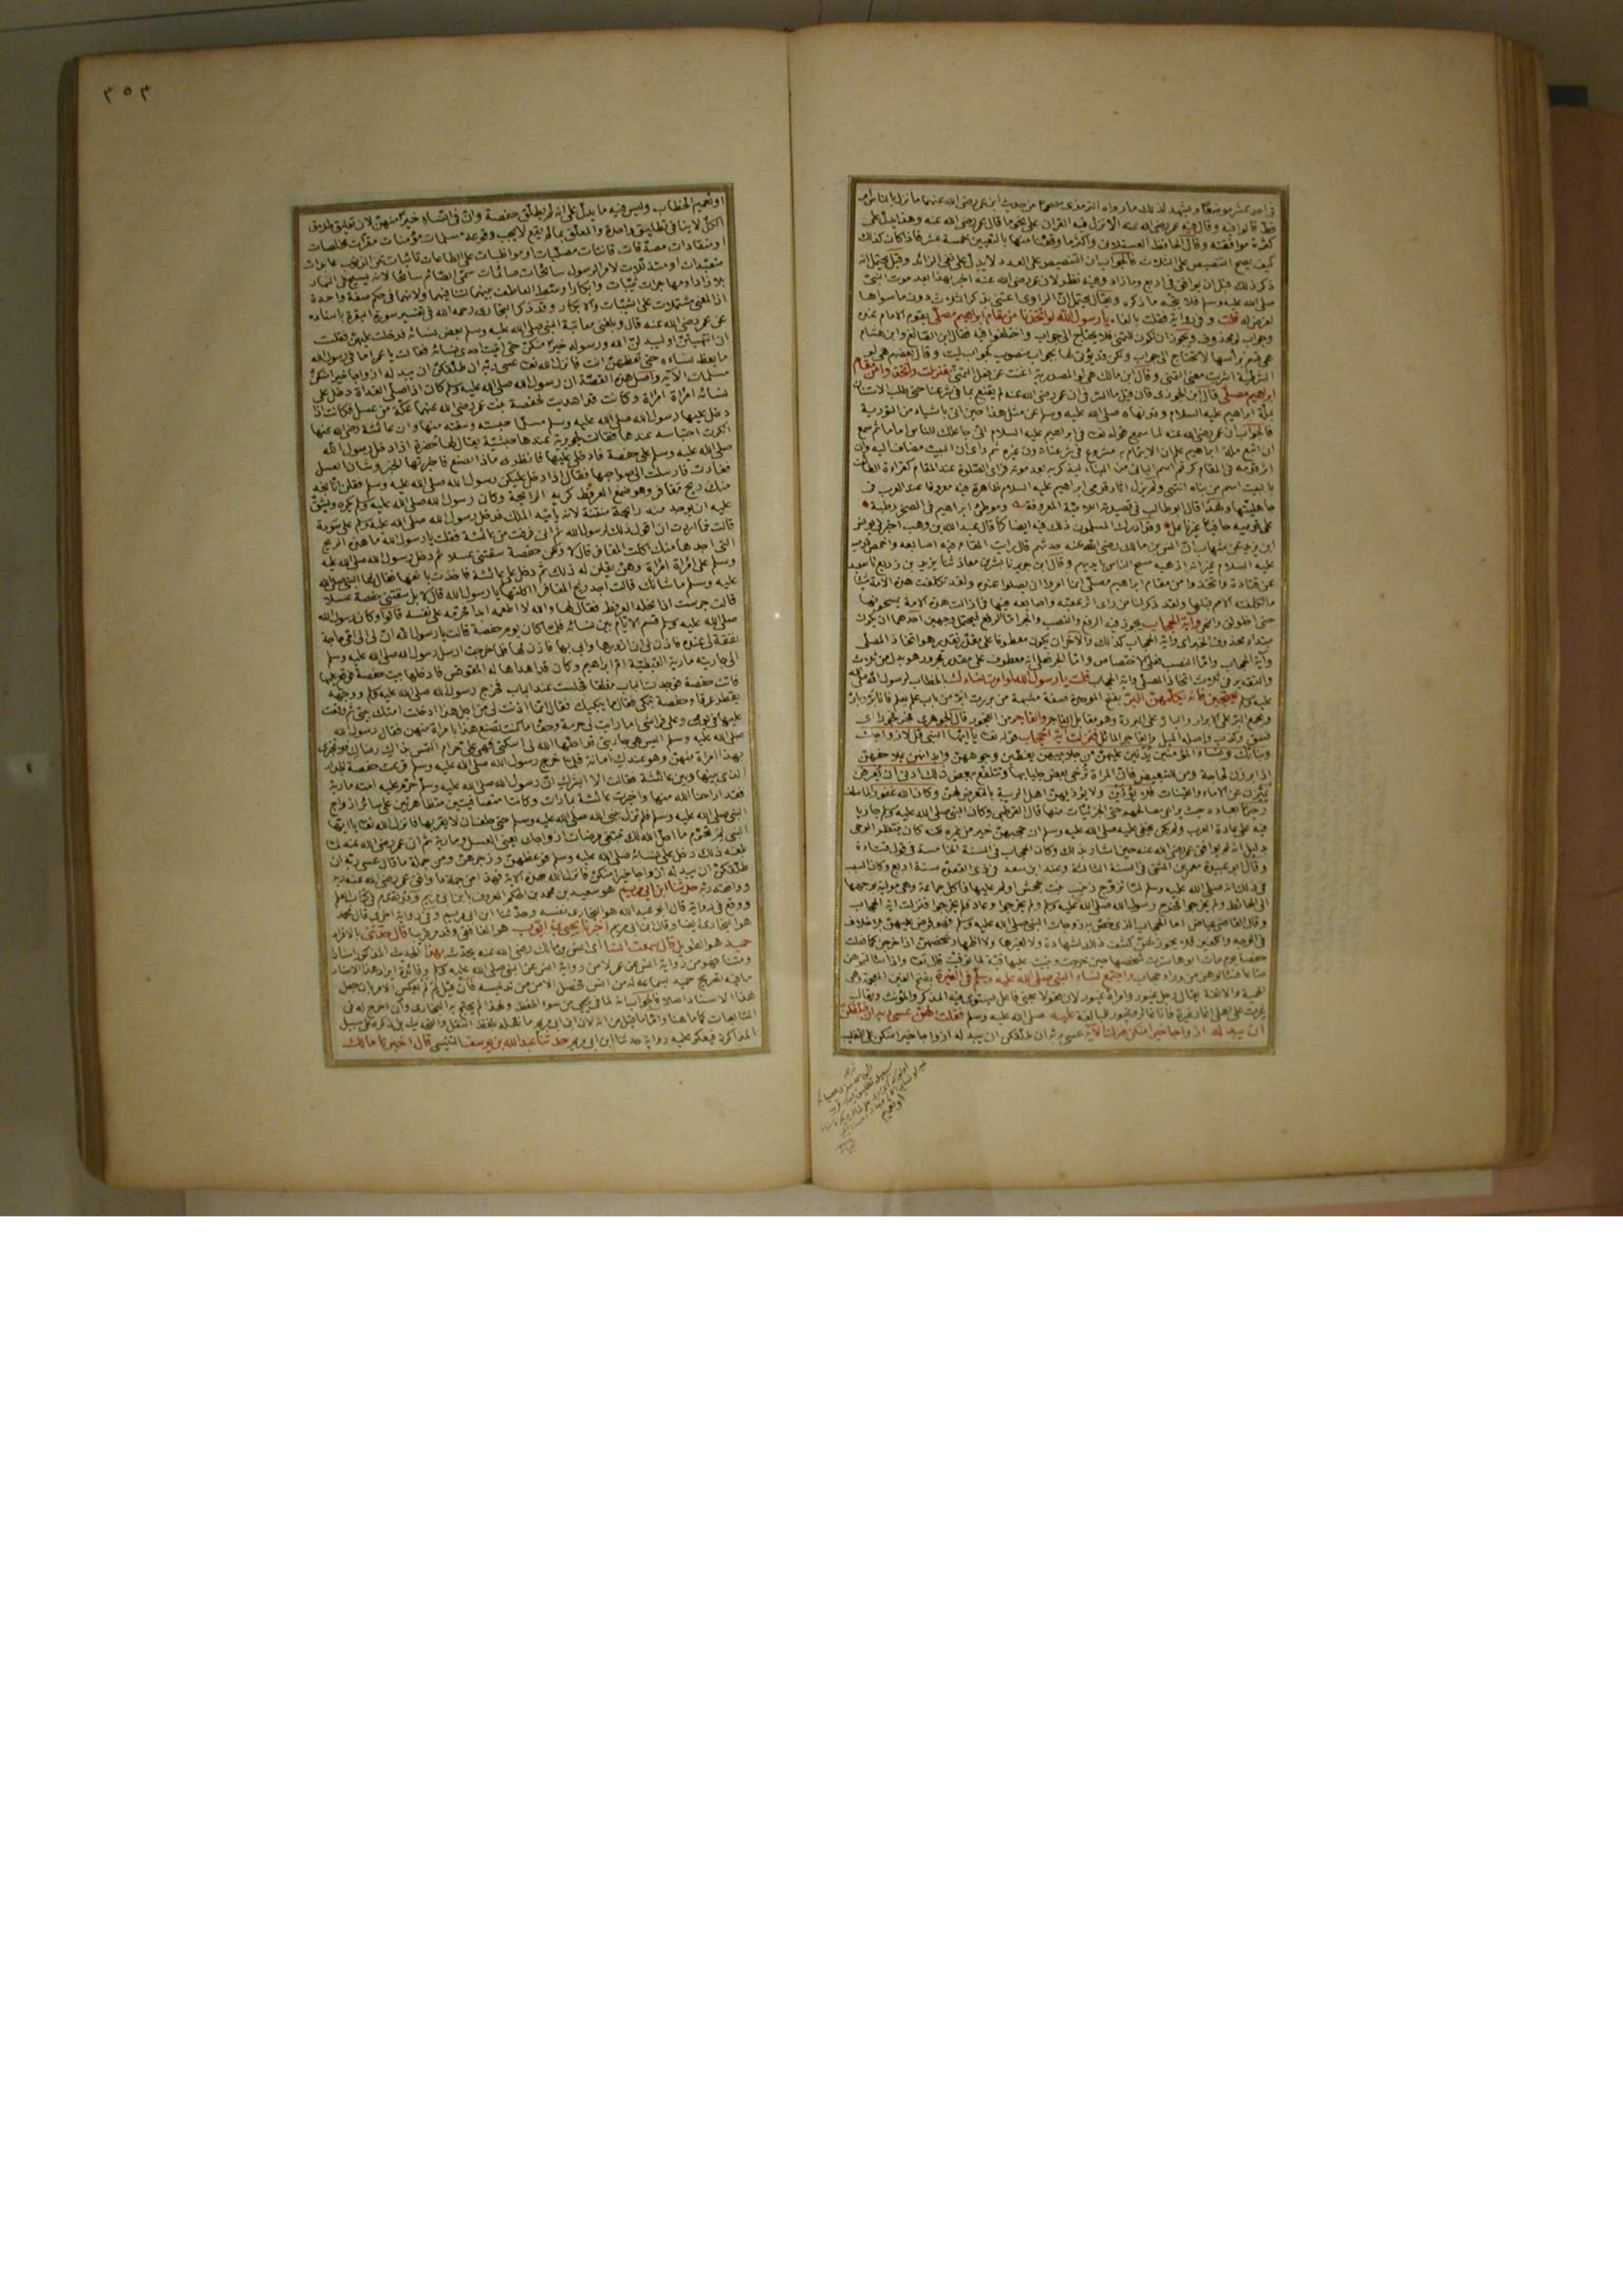 في احد عشر موضعًا ويشهد لذلك ما رواه الترمذي مصححا من حديث ابن عمر رضي الله عنهما ما نزل بالناس امر
قط قالوا فيه وقال فيه عمر رضي الله عنه الا نزل فيه القران على نحو ما قال عمر رضي الله عنه وهذا يدل على
كثرة موافقته وقال الحافظ العسقلاني واكثر ما وقفنا منها بالتعيين خمسة عشر فاذا كان كذلك
كيف يصح التنصيص على الثلاث فالجواب ان التنصيص على العدد لا يدل على نفي الزائد وقيل يحتمل انه
ذكر ذلك قبل ان يوافق في اربع وما زاد وفيه نظر لان عمر رضي الله عنه اخبر بهذا بعد موت النبي
صلى الله عليه وسلم فلا يتجه ما ذكره ويقال يحتمل ان الراوي اعتنى بذكر الثلاث دون ما سواها
لغرض له قلت وفي رواية فقلت بالفاء يا رسول الله لو اتخذنا من مقام ابراهيم مصلى
وجواب لو محذوف ويجوز ان تكون للتمني فلا يحتاج الى جواب واختلفوا فيه فقال ابن الصائغ وابن هشام
هي قسم براسها لا تحتاج الى جواب ولكن قد يؤتى لها بجواب منصوب كجواب ليت وقال بعضهم هي لو
الشرطية اشربت معنى التمني وقال ابن مالك هي لو المصدرية اغنت عن فعل التمني فنزلت واتخذوا من مقام
ابراهيم مصلى قال ابن الجوزي فان قيل ما السر في ان عمر رضي الله عنه لم يقنع بما في شرعنا حتى طلب الاستنان
بملة ابراهيم عليه السلام وقد نهاه صلى الله عليه وسلم عن مثل هذا حين اتى باشياء من التورية
فالجواب ان عمر رضي الله عنه لما سمع قوله تعالى في ابراهيم عليه السلام اني جاعلك للناس اماما ثم سمع
ان اتبع ملة ابراهيم علم ان الائتمام به مشروع في شرعنا دون غيره ثم راى ان البيت مضاف اليه وان
اثر قدمه في المقام كرقم اسم الباني من البناء ليذكر به بعد موته فراى الصلوة عند المقام كقراءة الطائف
بالبيت اسم من بناه انتهى ولم يزل اثار قدمي ابراهيم عليه السلام ظاهرة فيه معروفا عند العرب في
جاهليتها ولهذا قال ابو طالب في قصيدته اللامية المعروفة وموطئ ابراهيم في الصخر رطبة
على قدميه حافيا غير ناعل وقد ادرك المسلمون ذلك فيه ايضا كما قال عبد الله بن وهب اخبرني يونس
ابن يزيد عن ابن شهاب ان انس بن مالك رضي الله عنه حدثهم قال رايت المقام فيه اصابعه واخمص قدميه
عليه السلام غير انه اذهبه مسح الناس بايديهم وقال ابن جرير ثنا بشر بن معاذ ثنا يزيد بن زريع ثنا سعيد
عن قتادة واتخذوا من مقام ابراهيم مصلى انما امروا ان يصلوا عنده ولقد تكلفت هذه الامة شيئا
ما تكلفته الامم قبلها ولقد ذكر لنا من راى اثر عقبه واصابعه فيها فما زالت هذه الامة يمسحونها
حتى اخلولق وانمحى واية الحجاب يجوز فيه الرفع والنصب والجر اما الرفع فيحتمل وجهين احدهما ان يكون
مبتدا محذوف الخبر اي واية الحجاب كذلك والآخر ان يكون معطوفا على مقدر تقديره هو اتخاذ المصلى
وآية الحجاب واما النصب فعلى الاختصاص واما الجر فعلى انه معطوف على مقدر مجرور هو بدل من ثلاث
والتقدير في ثلاث اتخاذ المصلى واية الحجاب قلت يا رسول الله لو امرت نساءك الخطاب لرسول الله صلى الله
عليه وسلم ان يحتجبن فانه يكلمهن البر بفتح الموحدة صفة مشبهة
ويجمع البر على الابرار
فسق وكذب واصله الميل والفاجر المائل فنزلت آية الحجاب هو قوله تعالى يا ايها النبي قل لازواجك
وبناتك ونساء المؤمنين يدنين عليهن من جلابيبهن يغطين وجوههن وابدانهن بملاحفهن
اذا برزن لحاجة ومن للتبعيض فان المراة ترخي بعض جلبابها وتتلفع ببعض ذلك ادنى ان يعرفن
يميزن عن الاماء والقينات فلا يؤذين ولا يؤذيهن اهل الريبة بالتعرض لهن وكان الله غفورا لما سلف
رحيما بعباده حيث يراعي مصالحهم حتى الجزئيات منها قال القرطبي وكان النبي صلى الله عليه وسلم جاريا
فيه على عادة العرب ولم يكن يخفى عليه صلى الله عليه وسلم ان حجبهن خير من غيره لكنه كان ينتظر الوحي
بدليل انه لم يوافق عمر رضي الله عنه حين اشار بذلك وكان الحجاب في السنة الخامسة في قول قتادة
وقال ابو عبيدة معمر بن المثنى في السنة الثالثة وعند ابن سعد في ذي القعدة سنة اربع وكان السبب
في ذلك انه صلى الله عليه وسلم لما تزوج زينب بنت جحش اولم عليها فاكل جماعة وهي مولية بوجهها
الى الحائط ولم يخرجوا فخرج رسول الله صلى الله عليه وسلم ولم يخرجوا وعاد فلم يخرجوا فنزلت اية الحجاب
وقال القاضي عياض اما الحجاب الذي خص به زوجات النبي صلى الله عليه وسلم فهو فرض عليهن بلا خلاف
في الوجه والكفين فلا يجوز لهن كشف ذلك لشهادة ولا لغيرها ولا اظهار شخصهن اذا خرجن كما فعلت
حفصة يوم مات ابوها سترت شخصها حين خرجت وبنيت عليها قبة لما توفيت قال تعالى واذا سالتموهن
متاعا فسالوهن من وراء حجاب واجتمع نساء النبي صلى الله عليه وسلم في الغيرة بفتح الغين المعجمة وهي
الحمية والانفة يقال رجل غيور وامراة غيور لان فعولا بمعنى فاعل يستوي فيه المذكر والمؤنث ويقال
غرت على اهلي اغار غيرة فانا غائر وغيور للمبالغة عليه صلى الله عليه وسلم فقلت لهن عسى ربه ان طلقكن
ان يبدله ازواجا خيرا منكن فنزلت الآية عسى ربه ان طلقكن ان يبدله ازواجا خيرا منكن على التغليب
او تعميم
٣٥٣
او تعميم الخطاب وليس فيه ما يدل على انه لم يطلق حفصة وان في النساء خيرا منهن لان تعليق طلاق
الكل لا ينافي تطليق واحدة والمعلق بما لم يقع لا يجب وقوعه مسلمات مؤمنات مقرات مخلصات
او منقادات مصدقات قانتات مصليات او مواظبات على الطاعات تائبات عن الذنوب عابدات
متعبدات او متذللات لامر الرسول سائحات صائمات سمي الصائم سائحا لانه يسيح في النهار
بلا زاد او مهاجرات ثيبات وابكارا وسط العاطف بينهما لتنافيهما ولانهما في حكم صفة واحدة
اذ المعنى مشتملات على الثيبات والابكار وقد ذكر البخاري رحمه الله في تفسير سورة البقرة باسناده
عن عمر رضي الله عنه قال وبلغني معاتبة النبي صلى الله عليه وسلم بعض نسائه فدخلت عليهن فقلت
ان انتهيتن او ليبدلن الله ورسوله خيرا منكن حتى اتيت احدى نسائه فقالت يا عمر اما في رسول الله
ما يعظ نساءه حتى تعظهن انت فانزل الله تعالى عسى ربه ان طلقكن ان يبدله ازواجا خيرا منكن
مسلمات الآية واصل هذه القصة ان رسول الله صلى الله عليه وسلم كان اذا صلى الغداة دخل على
نسائه امراة امراة وكانت قد اهديت لحفصة بنت عمر رضي الله عنهما عكة من عسل فكانت اذا
دخل عليها رسول الله صلى الله عليه وسلم مسلما حبسته وسقته منها وان عائشة رضي الله عنها
انكرت احتباسه عندها فقالت لجويرية عندها حبشية يقال لها خضرة اذا دخل رسول الله
صلى الله عليه وسلم على حفصة فادخلي عليها فانظري ماذا يصنع فاخبرتها الخبر وشان العسل
فغارت فارسلت الى صواحبها فقالت اذا دخل عليكن رسول الله صلى الله عليه وسلم فقلن انا نجد
منك ريح مغافر وهو صمغ العرفط كريه الرائحة وكان رسول الله صلى الله عليه وسلم يكره ويشق
عليه ان يوجد منه رائحة منتنة لانه ياتيه الملك فدخل رسول الله صلى الله عليه وسلم على سودة
قالت فما اردت ان اقول ذلك لرسول الله ثم اني فرقت من عائشة فقلت يا رسول الله ما هذه الريح
التي اجدها منك اكلت المغافر قال لا ولكن حفصة سقتني عسلا ثم دخل رسول الله صلى الله عليه
وسلم على امراة امراة وهن يقلن له ذلك ثم دخل على عائشة فاخذت بانفها فقال لها النبي صلى الله
عليه وسلم ما شانك قالت اجد ريح المغافر اكلتها يا رسول الله قال لا بل سقتني حفصة عسلا
قالت جرست اذا نحله العرفط فقال لها والله لا اطعمه ابدا فحرمه على نفسه قالوا وكان رسول الله
صلى الله عليه وسلم قسم الايام بين نسائه فلما كان يوم حفصة قالت يا رسول الله ان لي الى ابي حاجة
نفقة لي عنده فاذن لي ان ازور
الى جاريته مارية القبطية ام ابراهيم وكان قد اهداها له المقوقس فادخلها بيت حفصة فوقع عليها
فاتت حفصة فوجدت الباب مغلقا فجلست عند الباب فخرج رسول الله صلى الله عليه وسلم ووجهه
يقطر عرقا وحفصة تبكي فقال ما يبكيك فقالت انما اذنت لي من اجل هذا ادخلت امتك بيتي ثم وقعت
عليها في يومي وعلى فراشي اما رايت لي حرمة وحقا ما كنت تصنع هذا بامراة منهن فقال رسول الله
صلى الله عليه وسلم اليس هي جاريتي قد احلها الله لي اسكتي فهي علي حرام التمس بذاك رضاك فلا تخبري
بهذا امراة منهن وهو عندك امانة فلما خرج رسول الله صلى الله عليه وسلم قرعت حفصة الجدار
الذي بينها وبين عائشة فقالت الا ابشرك ان رسول الله صلى الله عليه وسلم حرم عليه امته مارية
فقد اراحنا الله منها واخبرت عائشة بما رات وكانتا متصافيتين متظاهرتين على سائر ازواج
النبي صلى الله عليه وسلم فلم تزل بنبي الله صلى الله عليه وسلم حتى حلف ان لا يقربها فانزل الله تعالى يا ايها
النبي لم تحرم ما احل الله لك تبتغي مرضات ازواجك يعني العسل ومارية ثم ان عمر رضي الله عنه لما
بلغه ذلك دخل على نسائه صلى الله عليه وسلم فوعظهن وزجرهن ومن جملة ما قال عسى ربه ان
طلقكن ان يبدله ازواجا خيرا منكن فانزل الله هذه الاية فهذا من جملة ما وافق عمر رضي الله عنه ربه
ووافقه ربه حدثنا ابن ابي مريم هو سعيد بن محمد بن الحكم المعروف بابن ابي مريم وقد تقدم في كتاب العلم
ووقع في رواية قال ابو عبد الله هو البخاري نفسه وحدثنا ابن ابي مريم وفي رواية اخرى قال محمد
هو البخاري ايضا وقال ابن ابي مريم اخبرنا يحيى بن ايوب هو الغافقي وقد مر قريبا قال حدثني بالافراد
حميد هو الطويل قال سمعت انسا اي انس بن مالك رضي الله عنه يحدث بهذا الحديث المذكور اسنادا
ومتنا فهو من رواية انس عن عمر لا من رواية انس عن النبي صلى الله عليه وسلم وفائدة ايراد هذا الاسناد
ما فيه تصريح حميد بسماعه له من انس فحصل الامن من تدليسه فان قيل لم لم يعكس الامر بان جعل
هذا الاسناد اصلا فالجواب انه لما في يحيى من سوء الحفظ ولهذا لم يحتج به البخاري وان اخرج له في
المتابعات كما هنا واما ما قيل من انه لان ابن ابي مريم ما نقله بلفظ النقل والتحديث بل ذكره على سبيل
المذاكرة فيعكر عليه رواية حدثنا ابن ابي مريم حدثنا عبد الله بن يوسف التنيسي قال اخبرنا مالك